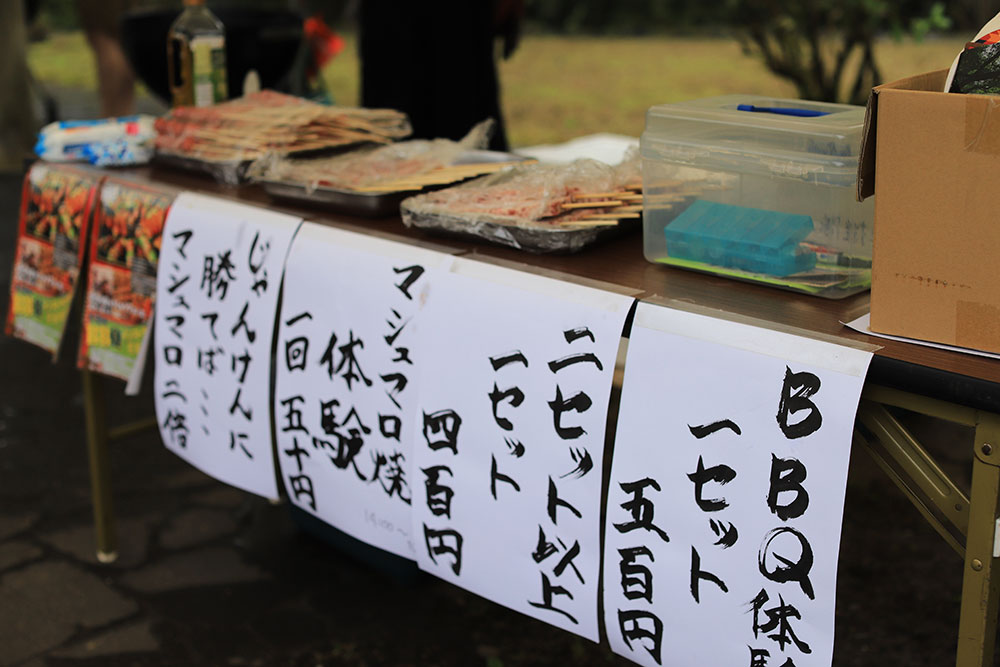 BBQ体験
一セット
五百円
二セット以上
一セット
四百円
マシュマロ焼
体験
一回 五十円
14:00〜
じゃんけんに
勝てば…
マシュマロ二倍